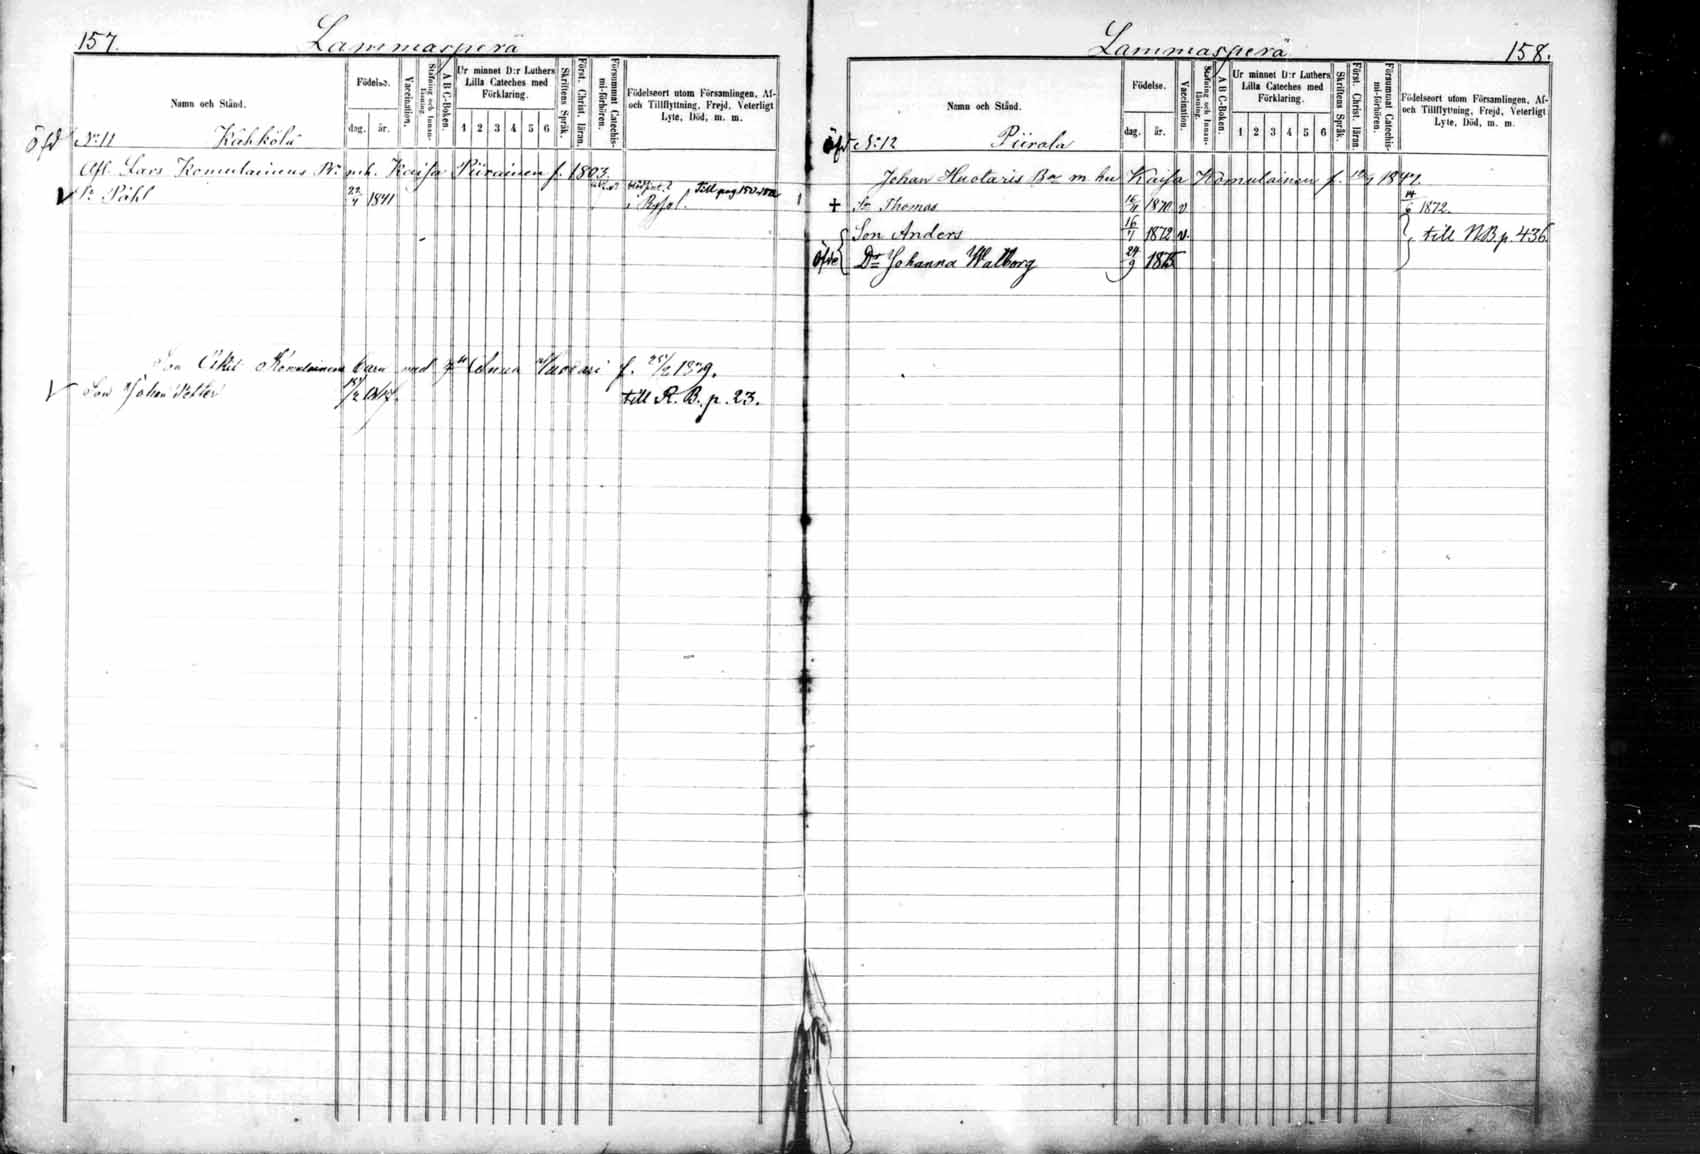 157.
Lammasperä
Namn och Stånd.
Födelse.
dag. år.
Vaccination.
Stafning och Innan-läsning.
A B C-Boken.
Ur minnet D:r Luthers Lilla Cateches med Förklaring.
1 2 3 4 5 6
Skriftens Språk.
Först. Christ. läran.
Försummat Catechis-mi-förhören.
Födelseort utom Församlingen, Af- och Tillflyttning, Frejd, Veterligt Lyte, Död, m. m.
öfd N:o 11 Kähkölä
Afl. Lars Komulainens Br. m. h. Kaisa Piirainen f. 1803.
Sr Påhl 22/4 1841 Till pag 150
Son Erkki Komulainens barn med Anna f. 25/2 1839.
Son Johan Petter till R. B. p. 23.
Lammasperä
158.
Namn och Stånd.
Födelse.
dag. år.
Vaccination.
Stafning och Innan-läsning.
A B C-Boken.
Ur minnet D:r Luthers Lilla Cateches med Förklaring.
1 2 3 4 5 6
Skriftens Språk.
Först. Christ. läran.
Försummat Catechis-mi-förhören.
Födelseort utom Församlingen, Af- och Tillflyttning, Frejd, Veterligt Lyte, Död, m. m.
öfd N:o 12 Piirala
Johan Huotaris Bn m hu Kaisa Komulainen f. 1847.
+ Sn Thomas 1870 v 14/6 1872.
Son Anders 16/7 1872 v. till N.B. p. 436.
öfde Dr Johanna Walborg 29/9 1875